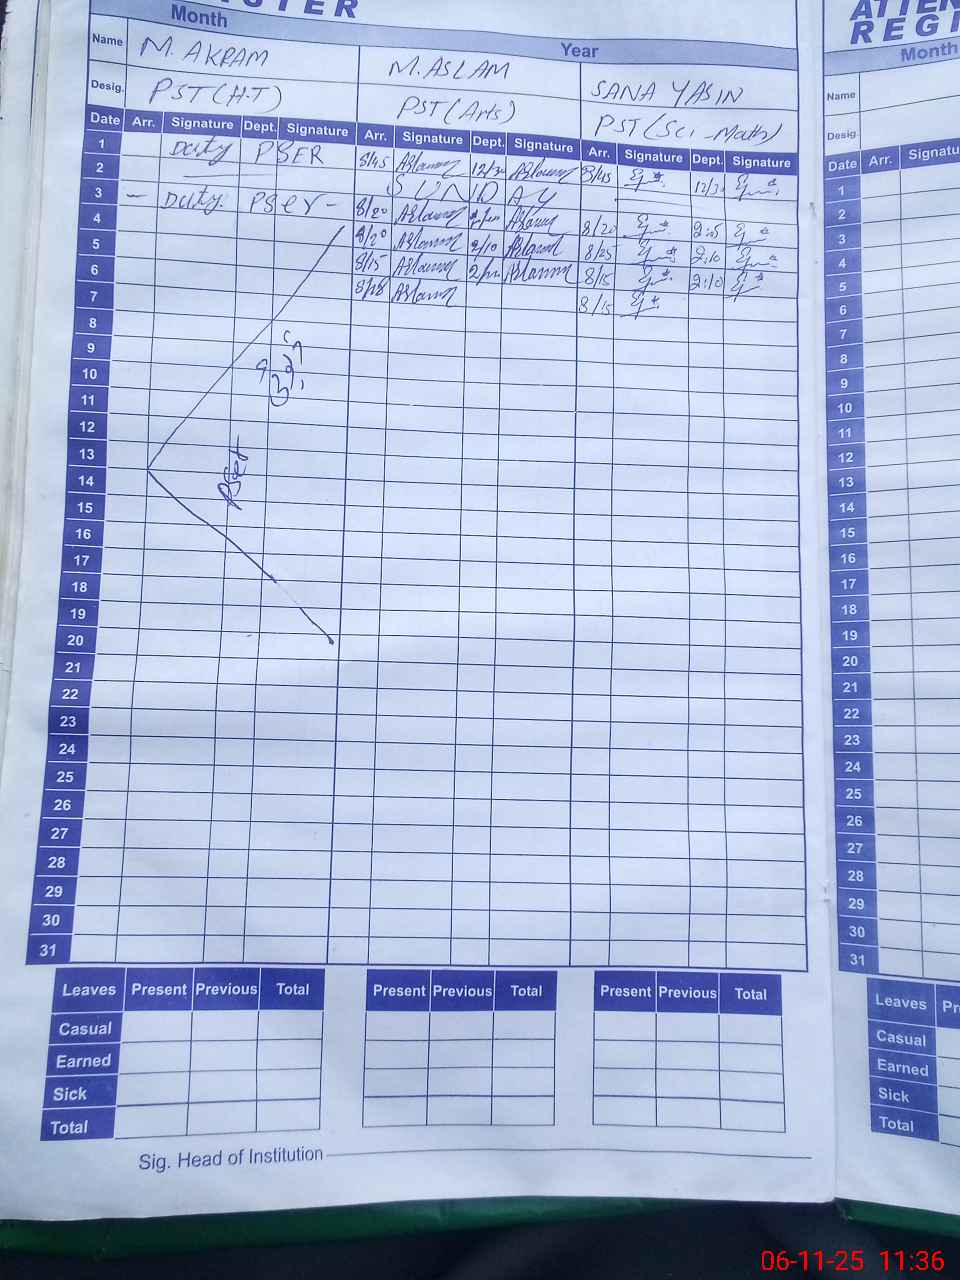 STER
Month
Year
Name M. AKRAM M. ASLAM SANA YASIN
Desig. PST (H.T) PST (Arts) PST (Sci-Math)
Date Arr. Signature Dept. Signature Arr. Signature Dept. Signature Arr. Signature Dept. Signature
1 Duty PSER 8/45 Aslam 12/30 Aslam 8/45 12/30
2 SUNDAY
3 – Duty PSER – 8/20 Aslam Aslam 8/20 2:05
4 8/20 Aslam 2/10 Aslam 8/25 2:10
5 8/15 Aslam Aslam 8/15 2:10
6 8/18 Aslam 8/15
7
8
9
10
11
12
13
PSER
14
15
16
17
18
19
20
21
22
23
24
25
26
27
28
29
30
31
Leaves Present Previous Total Present Previous Total Present Previous Total
Casual
Earned
Sick
Total
Sig. Head of Institution
ATTEN
REGI
Month
Name
Desig.
Date Arr. Signatu
1
2
3
4
5
6
7
8
9
10
11
12
13
14
15
16
17
18
19
20
21
22
23
24
25
26
27
28
29
30
31
Leaves Pr
Casual
Earned
Sick
Total
06-11-25 11:36